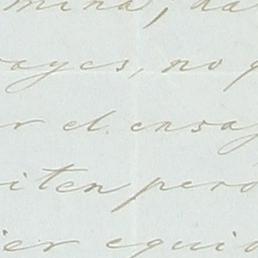 mina, ha
sayes, no q
r el ensay
iten pero
ier equio